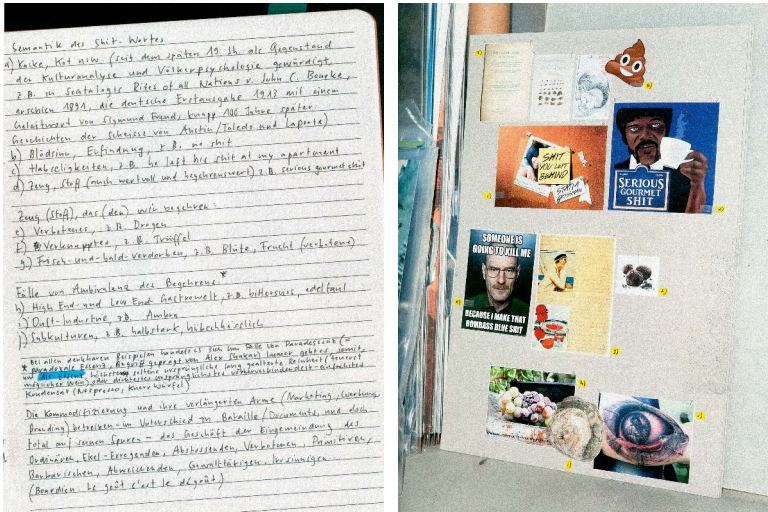 Semantik des Shit-Wortes
a) Kacke, Kot usw. (seit dem späten 19. Jh. als Gegenstand
der Kulturanalyse und Völkerpsychologie gewürdigt,
z.B. in Scatalogic Rites of all Nations v. John C. Bourke,
erschien 1891, die deutsche Erstausgabe 1913 mit einem
Geleitwort von Sigmund Freud, knapp 100 Jahre später
Geschichten der Scheisse von Austin/Toledo und Laporte)
b) Blödsinn, Erfindung, z.B. no shit
c) Habseligkeiten, z.B. he left his shit at my apartment
d) Zeug, Stoff (auch wertvoll und begehrenswert) z.B. serious gourmet shit
Zeug (Stoff), das (den) wir begehren
e) Verbotenes, z.B. Drogen
f) Verknapptes, z.B. Trüffel
g) Frisch-und-bald-verdorben, z.B. Blüte, Frucht (verbotene)
Fälle von Ambivalenz des Begehrens *
h) High End- und Low End Gastrowelt, z.B. bittersüss, edelfaul
i) Duft-Industrie, z.B. Ambra
j) Subkulturen, z.B. halbstark, hübschhässlich
* Bei allen denkbaren Beispielen handelt es sich um Fälle von Paradessenz (=
paradoxale Essenz, Begriff geprägt von Alex Shakar) Immer geht es, somit,
um die Essenz höchster seltene ursprüngliche lang gealterte Reinheit (teuerer
möglicher Wein) oder
Kondensat (Nespresso, Knorrwürfel)
Die Kommodifizierung und ihre verlängerten Arme (Marketing, Werbung,
Branding) betreiben – im Unterschied zu Bataille/Documents, und doch
total auf seinen Spuren – das Geschäft der Eingemeindung des
Ordinären, Ekel-Erregenden, Abstossenden, Verbotenen, Primitiven,
Barbarischen, Abweichenden, Gewalttätigen, Irrsinnigen.
(Bourdieu: le goût c'est le dégoût)
SHIT
YOU LEFT
BEHIND
SERIOUS
GOURMET
SHIT
SOMEONE IS
GOING TO KILL ME
BECAUSE I MAKE THAT
BOMBASS BLUE SHIT